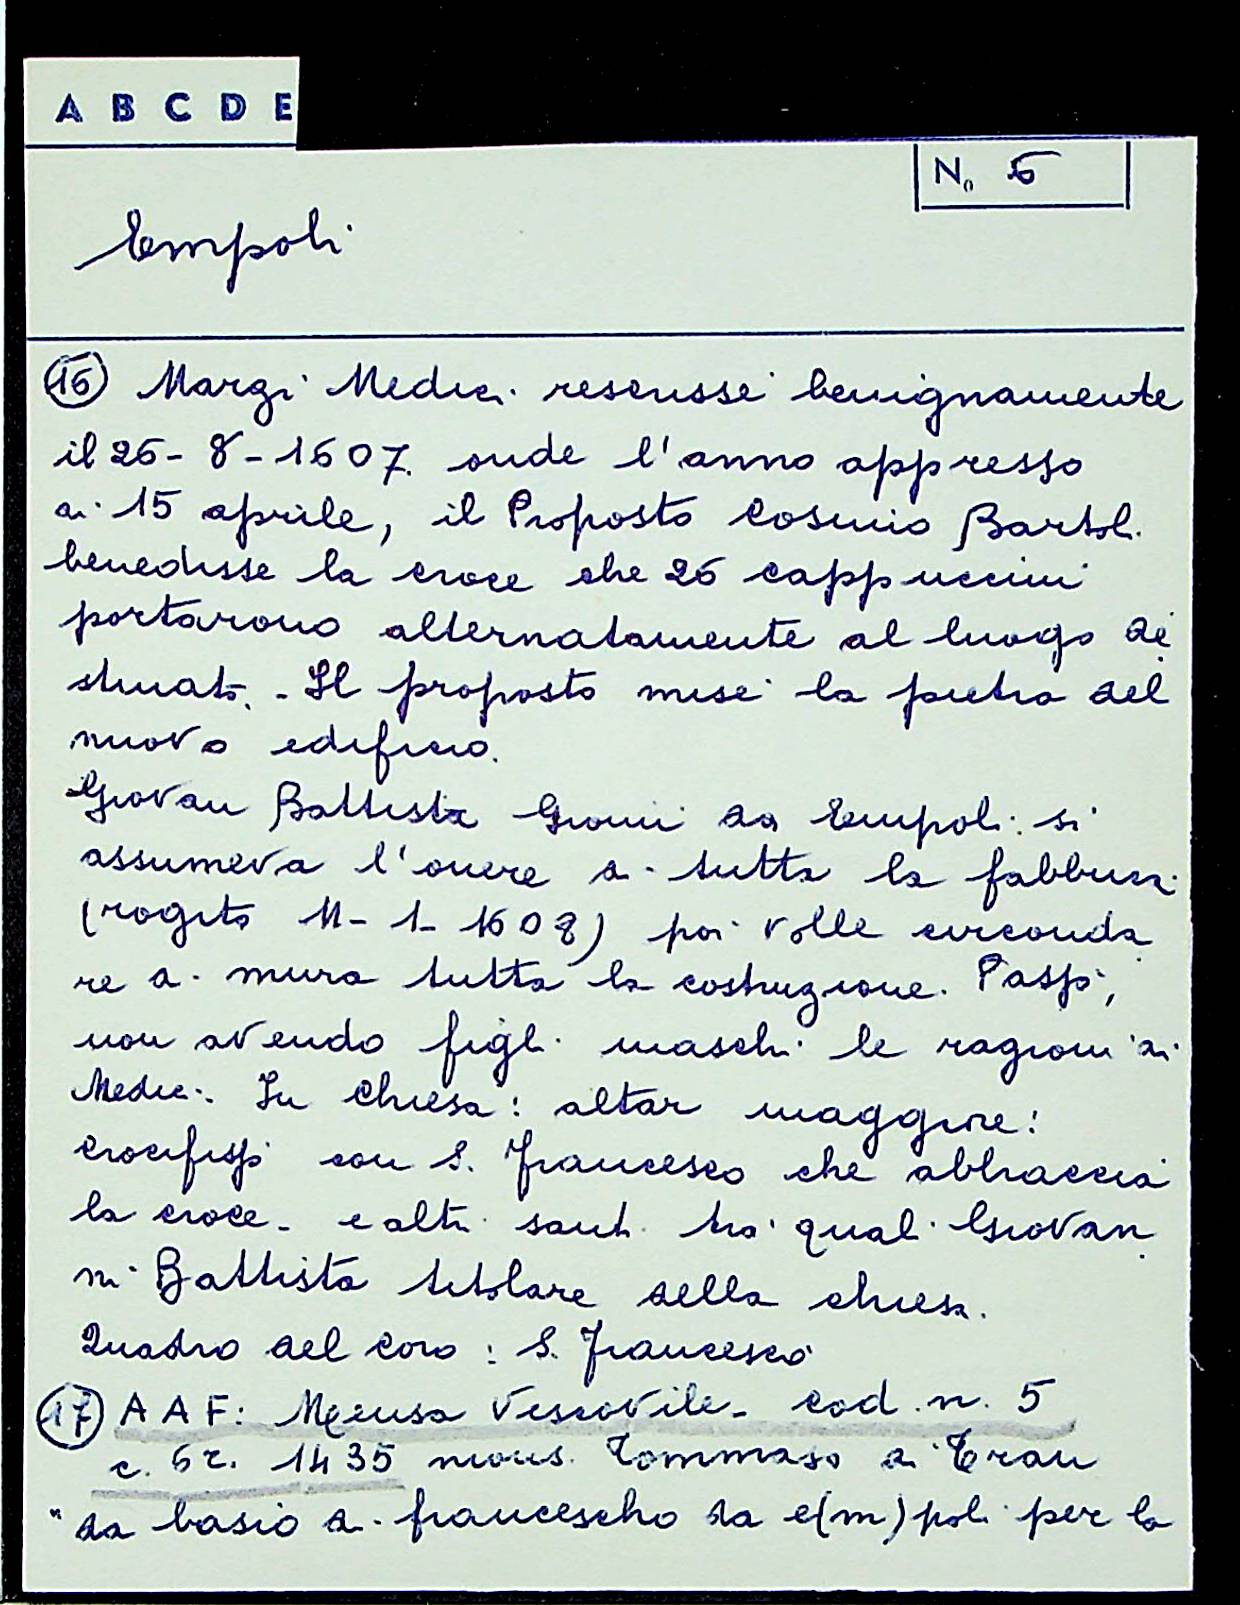 A B C D E
N. 6
Empoli
16 Margi Medici rescrisse benignamente
il 26-8-1607. onde l'anno appresso
ai 15 aprile, il Proposto Cosimo Bartoli
benedisse la croce che 26 cappuccini
portarono alternatamente al luogo de
stinato. - Il proposto mise la pietra del
nuovo edificio.
Giovan Battista Giomi da Empoli si
assumeva l'onere di tutta la fabbrica
(rogito 11-1-1608) poi volle circonda
re di mura tutta la costruzione. Passò,
non avendo figli maschi le ragioni ai
Medici. In Chiesa: altar maggiore:
crocifisso con S. Francesco che abbraccia
la croce - e altri santi tra quali Giovan
ni Battista titolare della chiesa.
Quadro del coro: S. Francesco
17 A A F: Mensa Vescovile - cod. n. 5
c. 62. 1435 mons. Tommaso di
"da basio di francescho da e(m)poli per la